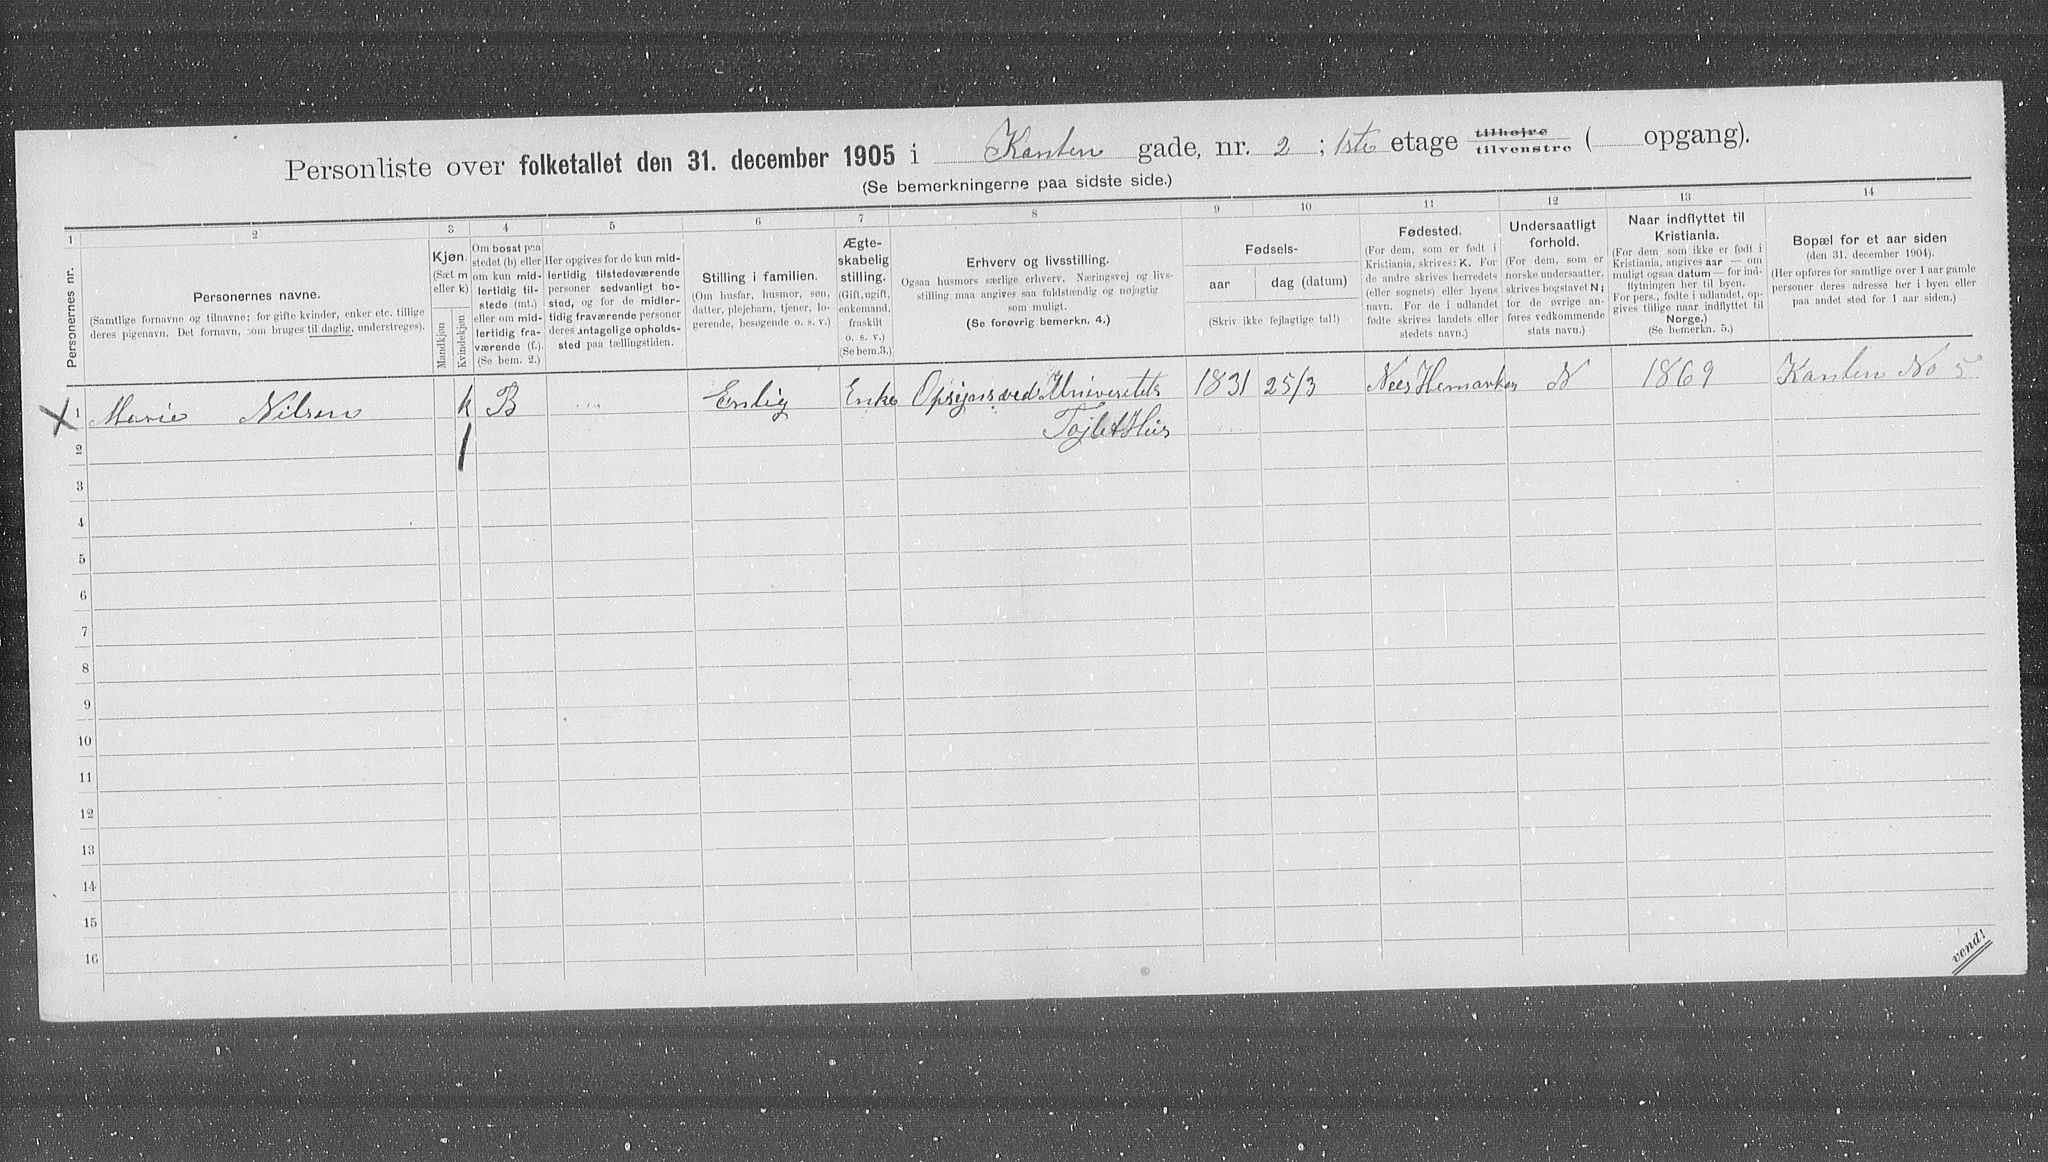 Personliste over folketallet den 31. december 1905 i Kanten gade, nr. 2 ; 1ste etage tilhøjre tilvenstre ( opgang).
(Se bemerkningerne paa sidste side.)
1 2 3 4 5 6 7 8 9 10 11 12 13 14
Personernes nr.
Personernes navne.
(Samtlige fornavne og tilnavne; for gifte kvinder, enker etc. tillige
deres pigenavn. Det fornavn, som bruges til daglig, understreges).
Kjøn.
(Sæt m
eller k)
Mandkjøn
Kvindekjøn
Om bosat paa
stedet (b) eller
om kun mid-
lertidig til-
stede (mt.)
eller om mid-
lertidig fra-
værende (f.).
(Se bem. 2.)
Her opgives for de kun mid-
lertidig tilstedeværende
personer sedvanligt bo-
sted, og for de midler-
tidig fraværende personer
deres antagelige opholds-
sted paa tællingstiden.
Stilling i familien.
(Om husfar, husmor, søn,
datter, plejebarn, tjener, lo-
gerende, besøgende o. s. v.)
Ægte-
skabelig
stilling.
(Gift, ugift,
enkemand,
fraskilt
o. s. v.)
(Se bem. 3.)
Erhverv og livsstilling.
Ogsaa husmors særlige erhverv. Næringsvej og livs-
stilling maa angives saa fuldstændig og nøjagtig
som muligt.
(Se forøvrig bemerkn. 4.)
Fødsels-
aar dag (datum)
(Skriv ikke fejlagtige tal!)
Fødested.
(For dem, som er født i
Kristiania, skrives: K. For
de andre skrives herredets
(eller sognets) eller byens
navn. For de i udlandet
fødte skrives landets eller
stedets navn.)
Undersaatligt
forhold.
(For dem, som er
norske undersaatter,
skrives bogstavet N;
for de øvrige an-
føres vedkommende
stats navn.)
Naar indflyttet til
Kristiania.
(For dem, som ikke er født i
Kristiania, angives aar — om
muligt ogsaa datum — for ind-
flytningen her til byen.
For pers., fødte i udlandet, op-
gives tillige naar indflyttet til
Norge.)
(Se bemerkn. 5.)
Bopæl for et aar siden
(den 31. december 1904).
(Her opføres for samtlige over 1 aar gamle
personer deres adresse her i byen eller
paa andet sted for 1 aar siden.)
X 1 Marie Nilsen k B Enlig Enke Opsijn ved Universitets 1831 25/3 Nees Hemarken N 1869 Kanten No 5
Tojlet Hus
2
3
4
5
6
7
8
9
10
11
12
13
14
15
16
vend!